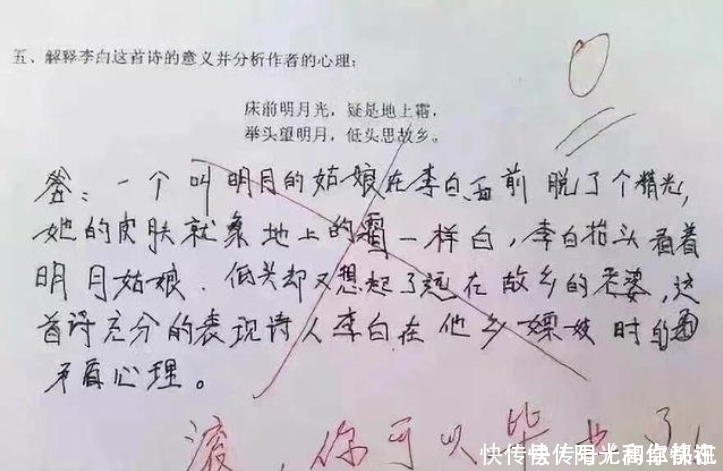 五、解释李白这首诗的意义并分析作者的心理:
床前明月光，疑是地上霜，
举头望明月，低头思故乡。
答：一个叫明月的姑娘在李白面前脱了个精光，
她的皮肤就象地上的霜一样白，李白抬头看着
明月姑娘．低头却又想起了远在故乡的老婆，这
首诗充分的表现诗人李白在他乡嫖妓时的
矛盾心理。
滚，你可以毕业了!
快传号传阳光